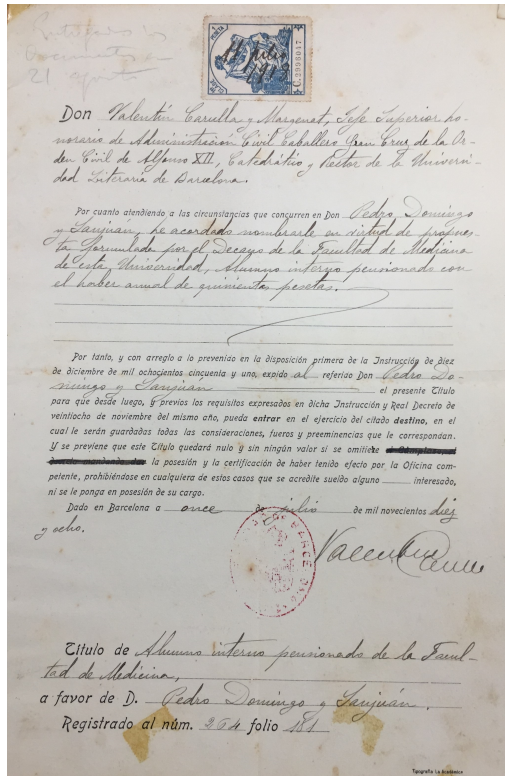 documento
21 agosto
PESETA
11 Julio
1918
C.2998047
Don Valentín Carulla y Margenat, Jefe Superior ho-
norario de Administración Civil Caballero Gran Cruz de la Or-
den Civil de Alfonso XII, Catedrático y Rector de la Universi-
dad Literaria de Barcelona.
Por cuanto atendiendo a las circunstancias que concurren en Don Pedro Domingo
y Sanjuán, he acordado nombrarle en virtud de propues-
ta formulada por el Decano de la Facultad de Medicina
de esta Universidad, Alumno interno pensionado con
el haber anual de quinientas pesetas.
Por tanto, y con arreglo a lo prevenido en la disposición primera de la Instrucción de diez
de diciembre de mil ochocientos cincuenta y uno, expido al referido Don Pedro Do-
mingo y Sanjuán el presente Título
para que desde luego, y previos los requisitos expresados en dicha Instrucción y Real Decreto de
veintiocho de noviembre del mismo año, pueda entrar en el ejercicio del citado destino, en el
cual le serán guardadas todas las consideraciones, fueros y preeminencias que le correspondan.
Y se previene que este Título quedará nulo y sin ningún valor si se omitiere
la posesión y la certificación de haber tenido efecto por la Oficina com-
petente, prohibiéndose en cualquiera de estos casos que se acredite sueldo alguno interesado,
ni se le ponga en posesión de su cargo.
Dado en Barcelona a once de julio de mil novecientos diez
y ocho.
Valentín Carulla
Título de Alumno interno pensionado de la Facul-
tad de Medicina,
a favor de D. Pedro Domingo y Sanjuán.
Registrado al núm. 264 folio 181
Tipografía La Académica